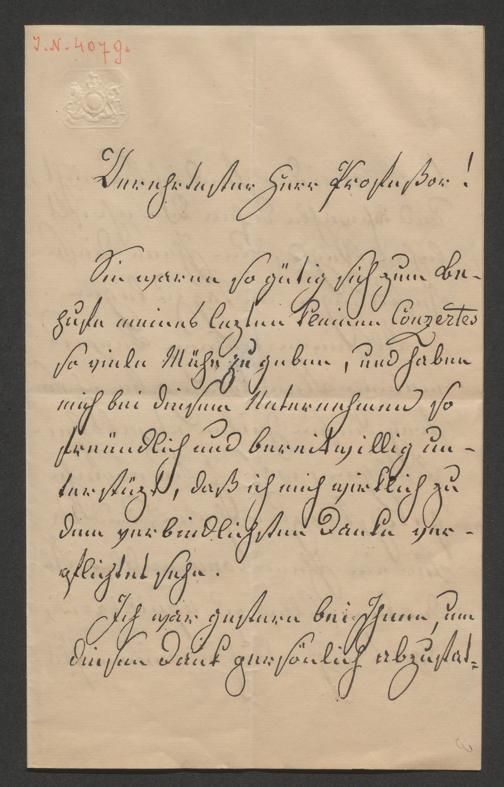 J.N. 4079.
Verehrtester Herr Profeßor!
Sie waren so gütig sich zum Be-
hufe meines lezten kleinen Conzertes
so viele Mühe zu geben, und haben
mich bei diesem Unternehmen so
freündlich und bereitwillig un-
terstüzt, daß ich mich wirklich zu
dem verbindlichsten Danke ver-
pflichtet sehe.
Ich war gestern bei Ihnen, um
diesen Dank persönlich abzustat-